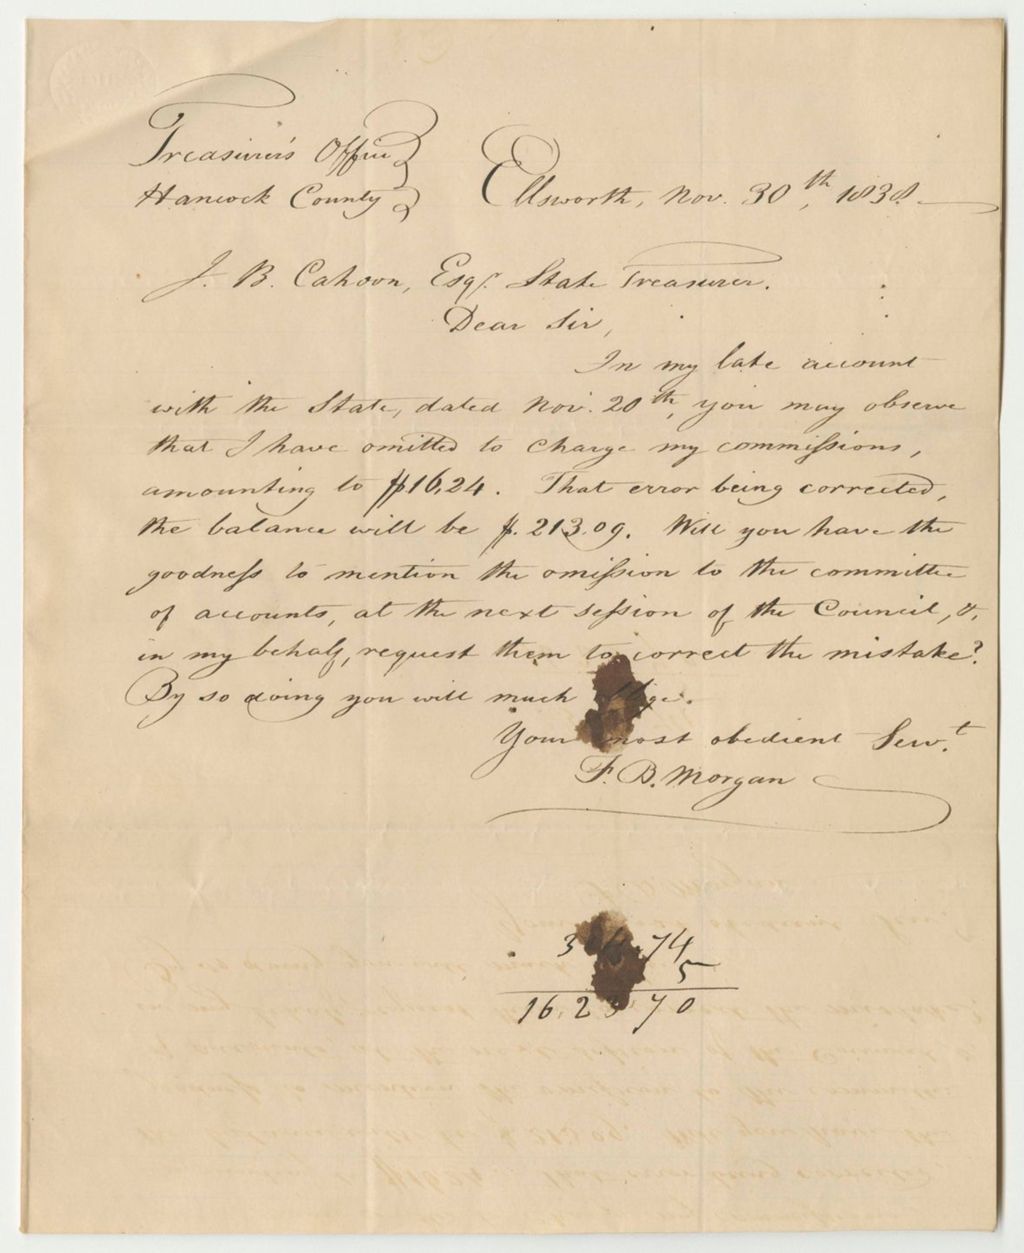 Treasurer's Office
Hancock County
Ellsworth, Nov. 30th, 1838.
J. B. Cahoon, Esqr. State Treasurer.
Dear Sir,
In my late account
with the State, dated Nov. 20th, you may observe
that I have omitted to charge my commissions,
amounting to $16,24. That error being corrected,
the balance will be $. 213.09. Will you have the
goodness to mention the omission to the committee
of accounts, at the next session of the Council, &,
in my behalf, request them to correct the mistake?
By so doing you will much oblige.
Your most obedient Serv.t
F. B. Morgan
74
5
16.23 70